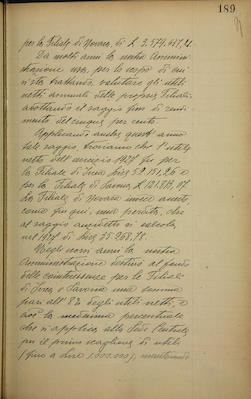 189
per la Filiale di Novara, di L 3.579.
Da molti anni la nostra Ammini-
strazione usa, per lo scopo di cui
si sta trattando, valutare gli utili
netti annuali delle proprie Filiali
adottando il saggio fisso di rendi-
mento del cinque per cento.
Applicando anche quest'anno
tale saggio, troviamo che l'utile
netto dell'esercizio 1927 fu per
la Filiale di Ivrea di L 52.151,26 e
per la Filiale di Savona, L 121.878,07
La Filiale di Novara invece avrebbe,
come fin qui, una perdita, che
al saggio anzidetto si calcola,
nel 1927 di L 25.268,78.
Negli scorsi anni la nostra
Amministrazione destinò al fondo
delle cointeressenze per le Filiali
di Ivrea e Savona una somma
pari all'8% degli utili netti, e
cioè la medesima percentuale
che si applica alla Sede Centrale
per il primo scaglione di utili
(fino a Lire 1.000.000), mantenendo